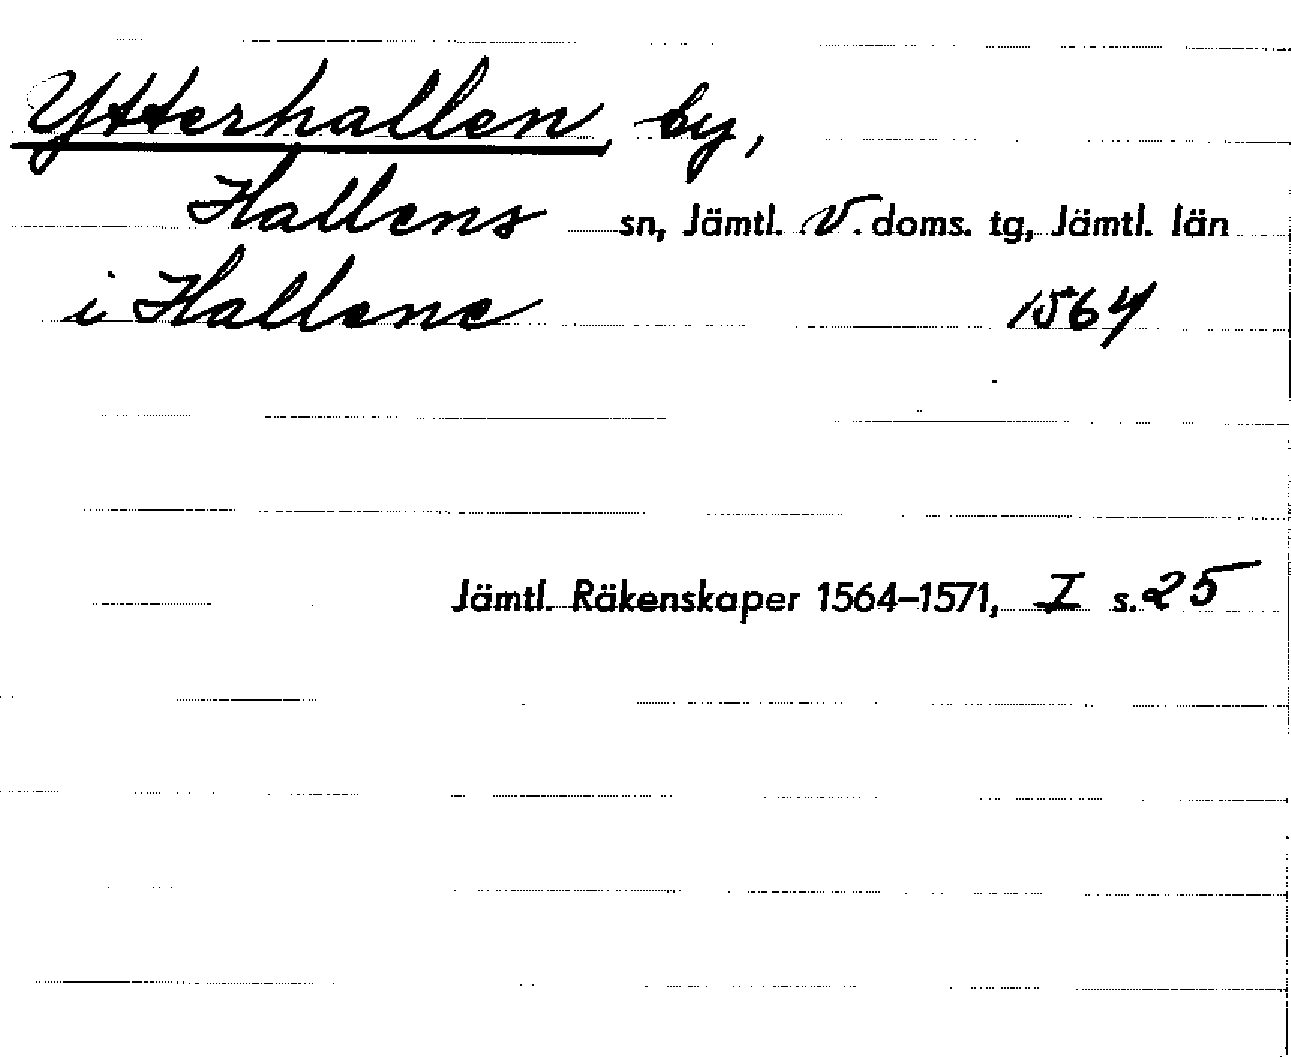 Ytterhallen, by,
Hallens sn, Jämtl. V. doms. tg, Jämtl. län
i Hallene 1564
Jämtl. Räkenskaper 1564–1571, I s. 25